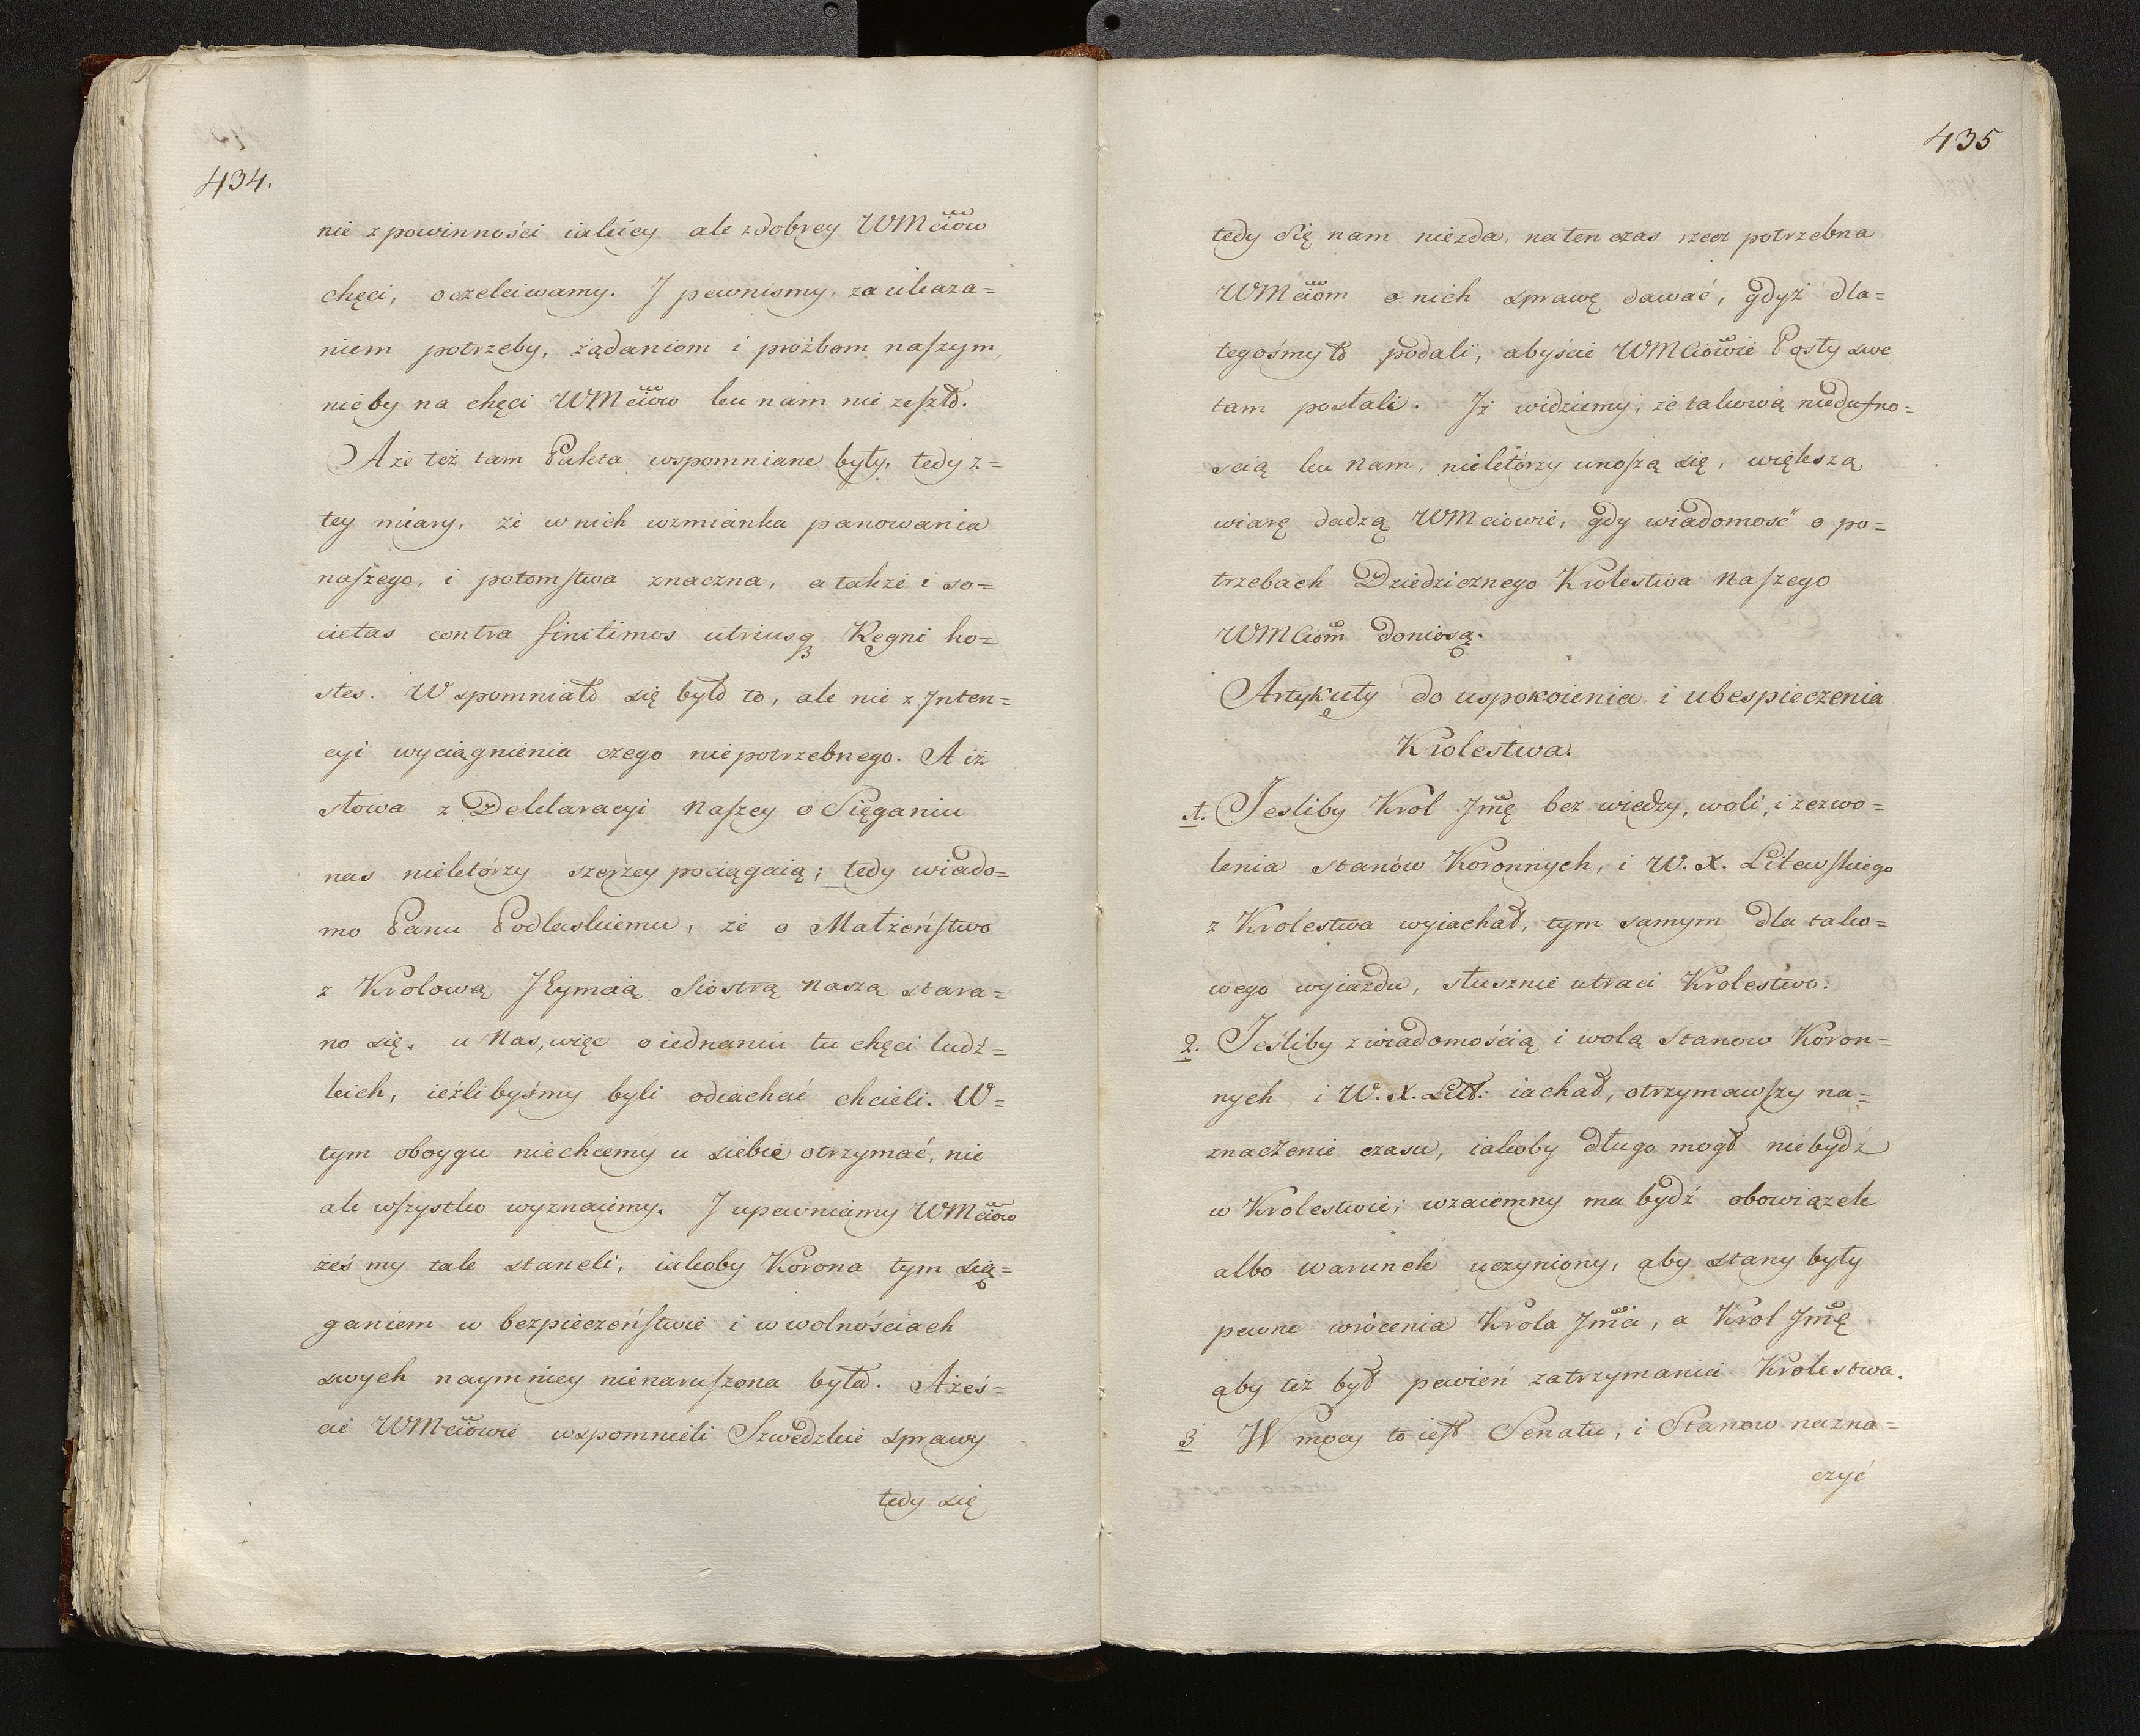 434.
nie z powinności iakiey ale z dobrey WMciów
chęci, oczekiwamy. J pewnismy, za ukaza=
niem potrzeby, żądaniom i prożbom naſzym,
nieby na chęci WMciów ku nam nie zeſzło.
Aże też tam Pakta wspomniane były, tedy z=
tey miary, że w nich wzmianka panowania
naſzego, i potomſtwa znaczna, a także i so=
cietas contra finitimos utriusq Regni ho=
stes. Wspomniało się było to, ale nie z Jnten=
cyi wyciągnienia czego niepotrzebnego. A iż
słowa z Deklaracyi Naſzey o Sięganiu
nas niektórzy szerzey pociągaią; tedy wiado=
mo Panu Podlaskiemu, że o Małżeńſtwo
z Krolową JEymcią Siostrą naszą stara=
no się, u Nas, więc o iednaniu tu chęci ludź=
kich, ieźlibyśmy byli odiachać chcieli. W=
tym oboygu niechcemy u siebie otrzymać, nie
ale wſzystko wyznaiemy. J upewniamy WMciów
żeś my tak staneli, iakoby Korona tym się=
ganiem w bezpieczeńſtwie i w wolnościach
swych naymniey nienaruſzona była. Ażeś=
cie WMciowie wspomnieli Szwedzkie sprawy
tedy się
435
tedy Się nam niezda, na ten czas rzecz potrzebna
WMciom o nich sprawę dawać, gdyż dla=
tegośmy to podali, abyście WMCiowie Posły swe
tam postali. Jż widziemy, że takową niedufno=
scią ku Nam, niektórzy unoſzą się, większą
wiarę dadzą WMciowie, gdy wiadomość o po=
trzebach Dziedzicznego Krolestwa Naſzego
WMCiom doniosą.
Artykuły do uspokoienia i ubespieczenia
Krolestwa.
1. Jesliby Krol Jmę bez wiedzy, woli, i zezwo=
lenia stanów Koronnych, i W. X. Litewſkiego
z Krolestwa wyiachał, tym samym dla tako=
wego wyiazdu, słusznie utraci Krolestwo.
2. Jeśliby z wiadomością i wolą Stanow Koron=
nych, i W. X. Litt: iachał, otrzymawſzy na=
znaczenie czasu, iakoby długo mogł niebydź
w Krolestwie; wzaiemny ma bydź obowiązek
albo warunek uczyniony, aby stany były
pewne wrócenia Krola Jmci, a Krol Jmę
aby też był pewień zatrzymania Krolestwa.
3 W mocy to ieſt Senatu, i Stanow nazna=
czyć